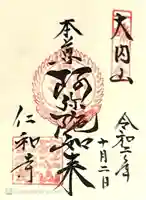 大内山
本尊
阿弥陀如来
仁和寺
令和二年
十月二日